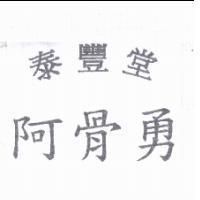 泰豐堂
阿骨勇